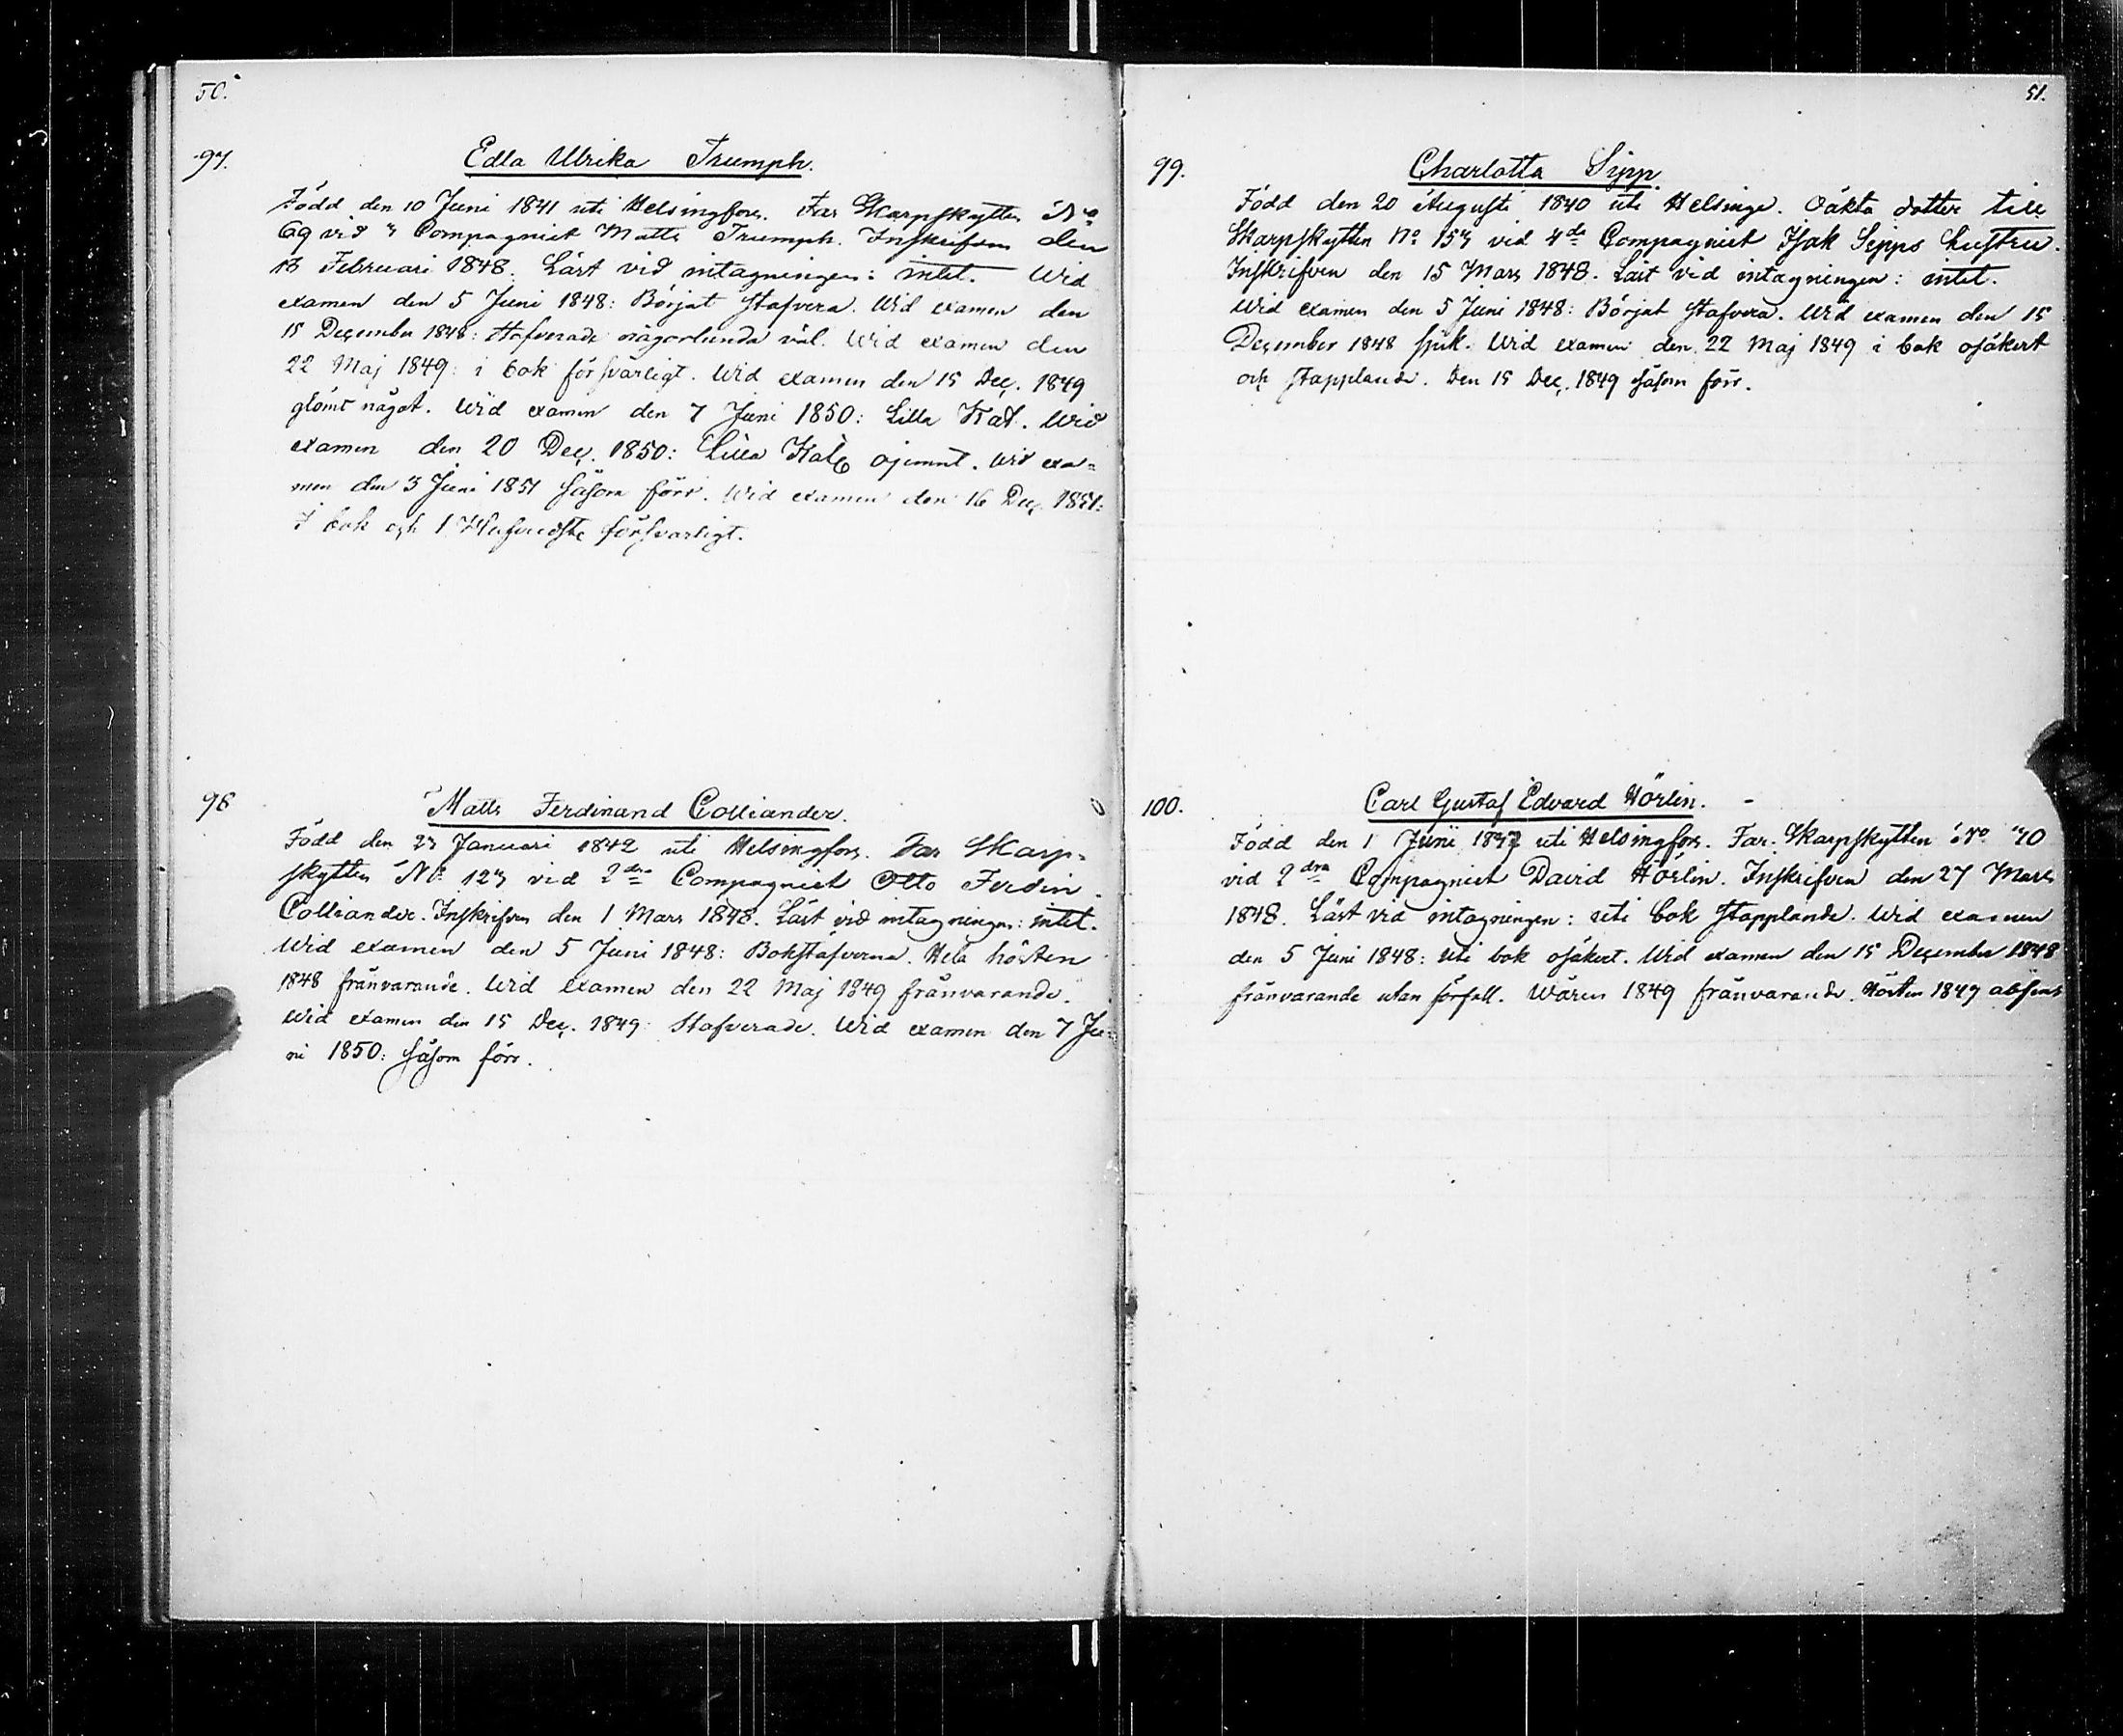 50.
97.
Edla Ulrika Triumph.
Född den 10 Juni 1841 uti Helsingfors. Far Skarpskytten No
69 vid Compagniet Matts Triumph. Inskrifven den
Februari 1848. Läst vid intagningen: intet. Wid
examen den 5 Juni 1848: Börjat stafvera. Wid examen den
15 December 1848: Stafverade någorlunda väl. Wid examen den
22 Maj 1849: i bok försvarligt. Wid examen den 15 Dec. 1849
glömt något. Wid examen den 7 Juni 1850: Lilla Kat. Wid
examen den 20 Dec. 1850: Lilla Kat ojemnt. Wid exa=
men den 3 Juni 1851 såsom förr. Wid examen den 16 Dec. 1851:
I bok och 1 Hufvudst. försvarligt.
98
Matts Ferdinand Colliander.
Född den 23 Januari 1842 uti Helsingfors. Far Skarp=
skytten No 123 vid 2dra Compagniet Otto Ferdin.
Colliander. Inskrifven den 1 Mars 1848. Läst vid intagningen: intet.
Wid examen den 5 Juni 1848: Bokstäfverna. Hela hösten
1848 frånvarande. Wid examen den 22 Maj 1849 frånvarande.
Wid examen den 15 Dec. 1849: Stafverade. Wid examen den 7 Ju=
ni 1850: såsom förr.
51.
99.
Charlotta Sipp.
Född den 20 Augusti 1840 uti Helsinge. Oäkta dotter till
Skarpskytten No 153 vid 4de Compagniet Isak Sipps hustru.
Inskrifven den 15 Mars 1848. Läst vid intagningen: intet.
Wid examen den 5 Juni 1848: Börjat stafvera. Wid examen den 15
December 1848 sjuk. Wid examen den 22 Maj 1849 i bok osäkert
och stapplande. Den 15 Dec. 1849 såsom förr.
100.
Carl Gustaf Edvard Hörlin.
Född den 1 Juni 1837 uti Helsingfors. Far: Skarpskytten No 70
vid 2dra Compagniet David Hörlin. Inskrifven den 27 Mars
1848. Läst vid intagningen: uti bok stapplande. Wid examen
den 5 Juni 1848: uti bok osäkert. Wid examen den 15 December 1848
frånvarande utan förfall. Våren 1849 frånvarande. Hösten 1849 absent